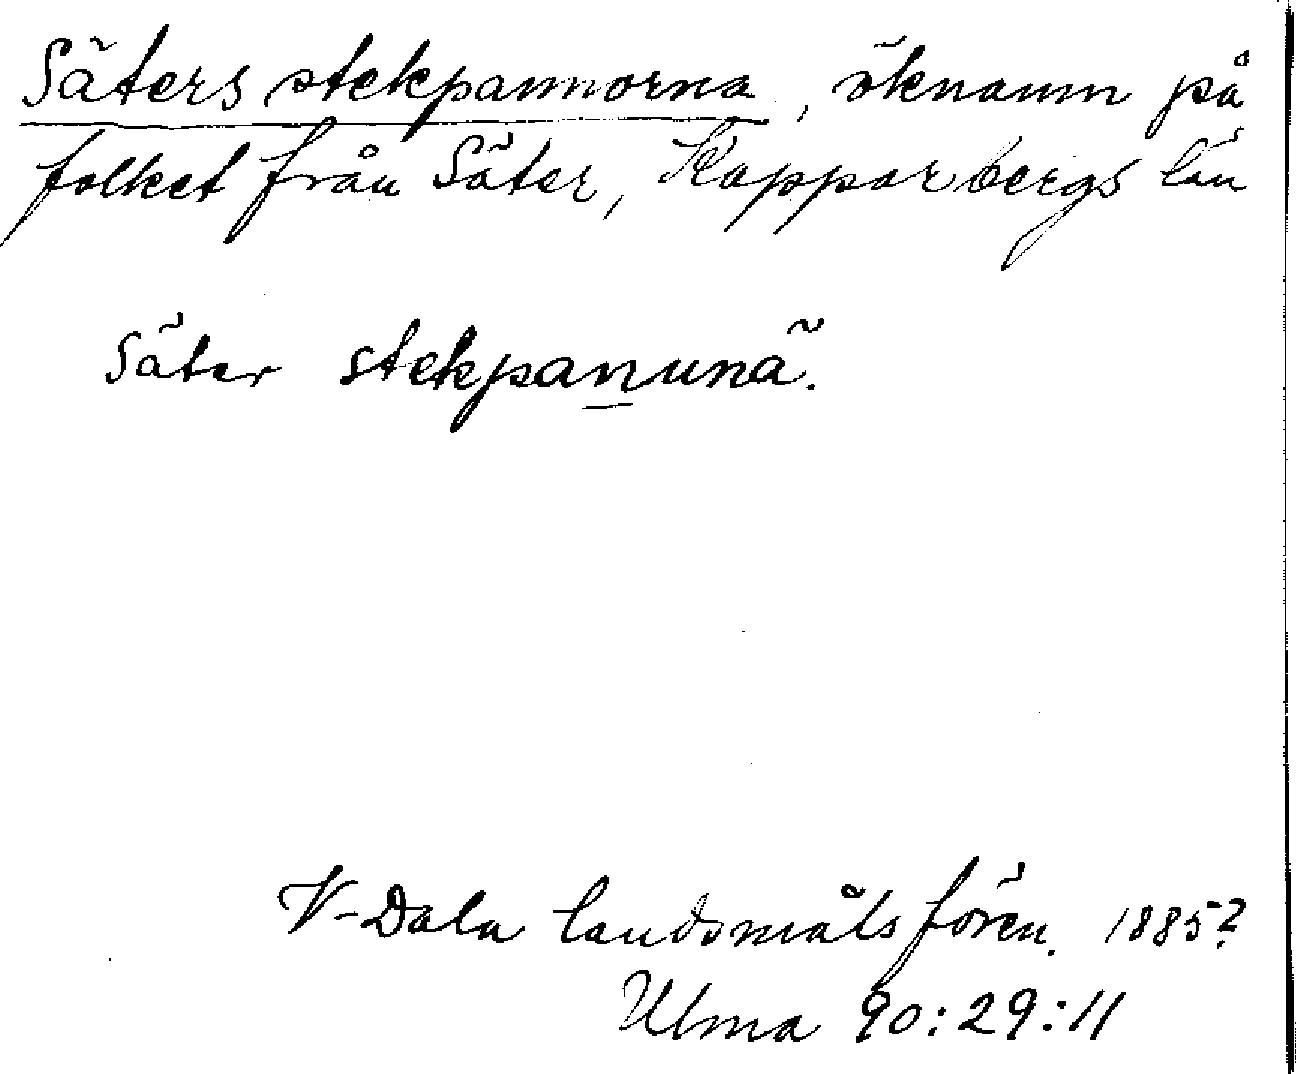 Säters stekpannorna, öknamn på
folket från Säter, Kopparbergs län
Säter stekpanunä.
V-Dala landsmålsfören. 1885?
Ulma 90:29:11